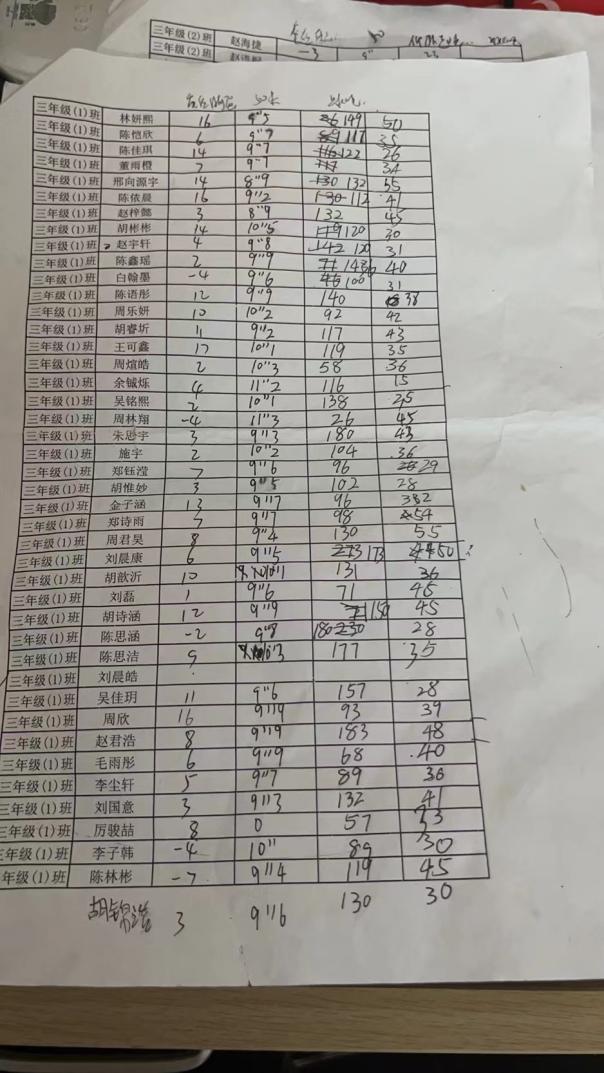 三年级(2)班 赵海捷 -3 9"
三年级(2)班 23
50米
三年级(1)班 林妍熙 16 9"5 149 50
三年级(1)班 陈恺欣 6 9"9 117 35
三年级(1)班 陈佳琪 14 9"7 122 26
三年级(1)班 董雨橙 7 9"7 34
三年级(1)班 邢向源宇 14 8"9 132 55
三年级(1)班 陈依晨 16 9"2 112 41
三年级(1)班 赵梓懿 3 8"9 132 45
三年级(1)班 胡彬彬 14 10"5 120 30
三年级(1)班 赵宇轩 4 9"8 120 31
三年级(1)班 陈鑫瑶 2 9"9 40
三年级(1)班 白翰墨 -4 9"6 100 31
三年级(1)班 陈语彤 12 9"9 140 38
三年级(1)班 周乐妍 10 10"2 92 42
三年级(1)班 胡睿圻 11 9"2 117 43
三年级(1)班 王可鑫 17 10"1 119 35
三年级(1)班 周煊皓 2 10"3 58 36
三年级(1)班 余铖烁 4 11"2 116 15
三年级(1)班 吴铭熙 2 10"1 138 25
三年级(1)班 周林翔 -4 11"3 26 45
三年级(1)班 朱思宇 3 9"3 180 43
三年级(1)班 施宇 2 10"2 104 36
三年级(1)班 郑钰滢 7 9"6 96 29
三年级(1)班 胡惟妙 3 9"5 102 28
三年级(1)班 金子涵 13 9"7 96
三年级(1)班 郑诗雨 7 9"7 98 54
三年级(1)班 周君昊 8 9"4 130 55
三年级(1)班 刘晨康 6 9"5 173 50
三年级(1)班 胡歆沂 10 10"1 131 36
三年级(1)班 刘磊 1 9"6 71 45
三年级(1)班 胡诗涵 12 9"9 150 45
三年级(1)班 陈思涵 -2 9"8 180 28
三年级(1)班 陈思洁 9 10"3 177 35
三年级(1)班 刘晨皓
三年级(1)班 吴佳玥 11 9"6 157 28
三年级(1)班 周欣 16 9"9 93 39
三年级(1)班 赵君浩 8 9"9 183 48
三年级(1)班 毛雨彤 6 9"9 68 40
三年级(1)班 李尘轩 5 9"7 89 36
三年级(1)班 刘国意 3 9"3 132 41
三年级(1)班 厉骏喆 8 0 57 33
三年级(1)班 李子韩 -4 10" 89 30
三年级(1)班 陈林彬 -7 9"4 119 45
胡锦浩 3 9"6 130 30